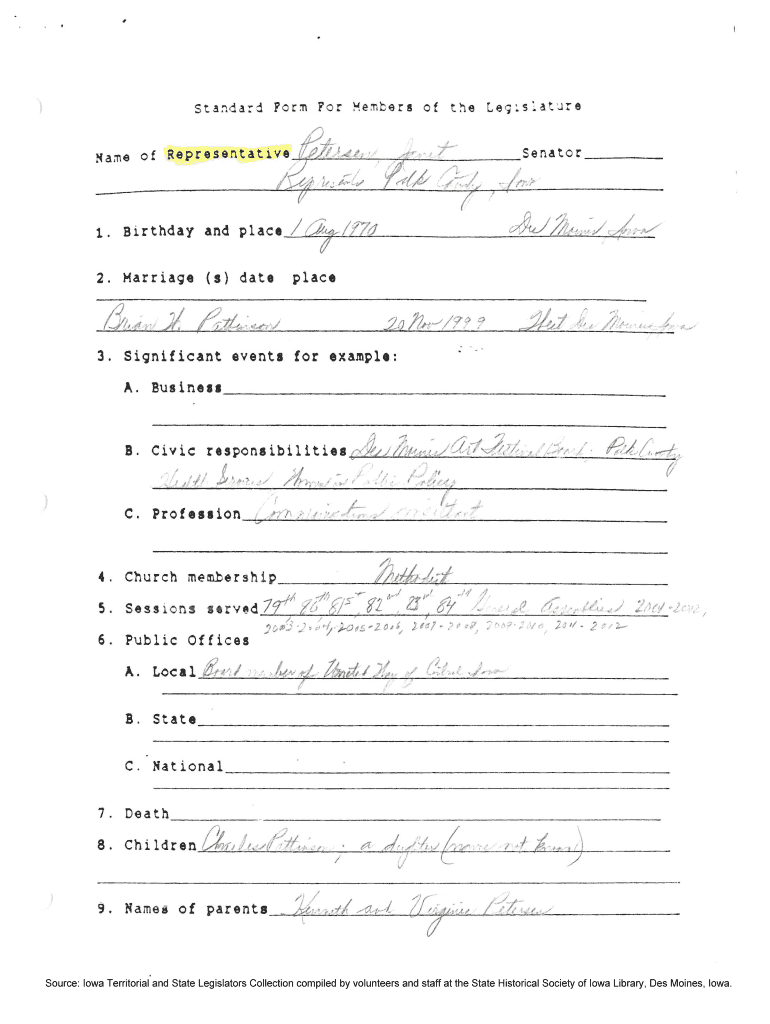 Standard Form For Members of the Legislature
Name of Representative Petersen, Janet Senator
Represents Polk County, Iowa
1. Birthday and place 1 Aug 1970 Des Moines, Iowa
2. Marriage (s) date place
Brian H. Pattinson 20 Nov 1999 West Des Moines, Iowa
3. Significant events for example:
A. Business
B. Civic responsibilities Des Moines Art Festival Board; Polk County
Health Services, Women in Public Policy
C. Profession Communications consultant
4. Church membership Methodist
5. Sessions served 79th, 80th, 81st, 82nd, 83rd, 84th General Assemblies 2001-2002,
2003-2004, 2005-2006, 2007-2008, 2009-2010, 2011-2012
6. Public Offices
A. Local Board member of United Way of Central Iowa
B. State
C. National
7. Death
8. Children Charles Pattinson; a daughter (name not known)
9. Names of parents Kenneth and Virginia Petersen
Source: Iowa Territorial and State Legislators Collection compiled by volunteers and staff at the State Historical Society of Iowa Library, Des Moines, Iowa.